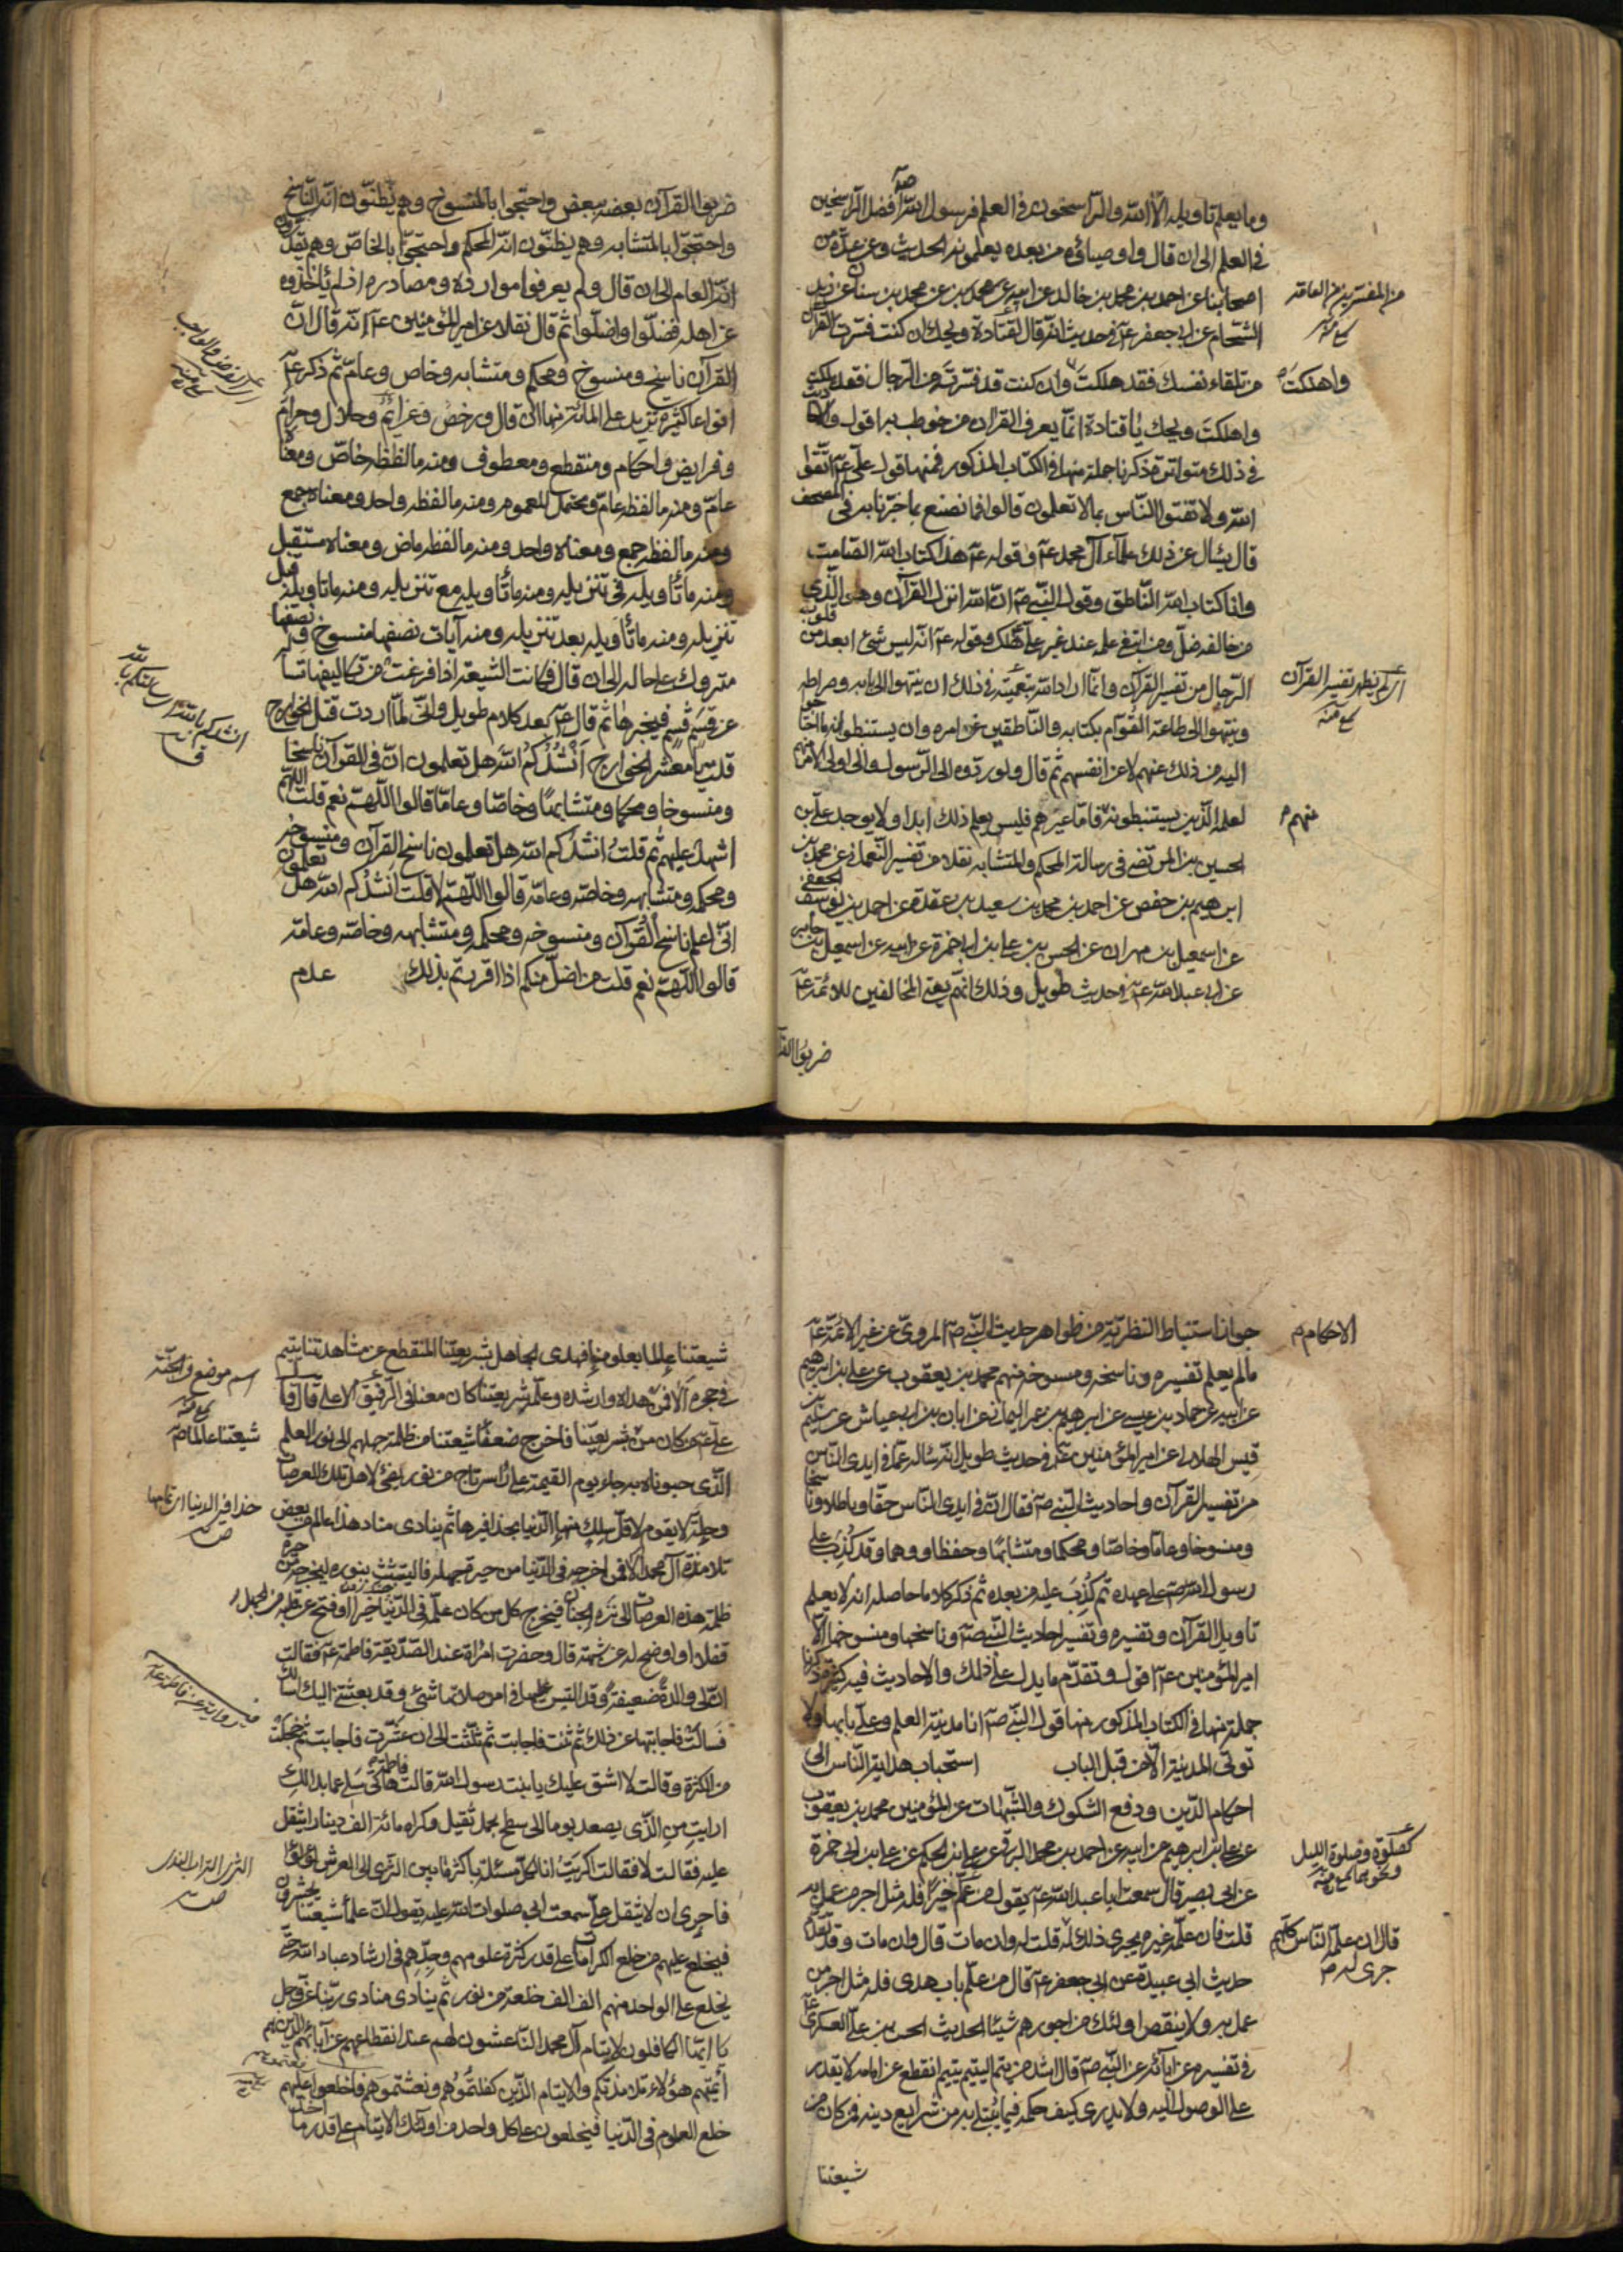 وما يعلم تاويله الا الله والراسخون في العلم فرسول الله صم افضل الراسخين
في العلم الى ان قال واوصيائه من بعده يعلمونه الحديث وعن عدة من
اصحابنا عن احمد بن محمد بن خالد عن ابيه عن محمد بن سنان عن زيد
من المفسرين من العامة
الشحام عن ابي جعفر عم في حديث انه قال لقتادة ويحك ان كنت فسرت القرآن
من تلقاء نفسك فقد هلكت وان كنت قد فسرته من الرجال فقد هلكت
واهلكت م
واهلكت ويحك يا قتادة انما يعرف القران من خوطب به اقول والاحاديث
في ذلك متواترة ذكرنا جملة منها في الكتاب المذكور فمنها قول علي عم اتقوا
الله ولا تفتوا الناس بما لا تعلمون قالوا فما نصنع بما خبرنا به في المصحف
قال يسال عن ذلك علماء آل محمد عم وقوله عم هذا كتاب الله الصامت
وانا كتاب الله الناطق وقول النبي صم ان الله انزل القرآن وهو الذي
من خالفه ضل ومن ابتغى علمه عند غير علي هلك وقوله عم انه ليس شئ ابعد من قلوب
الرجال من تفسير القرآن وانما اراد الله بتعميته في ذلك ان ينتهوا الى بابه وصراطه
وينتهوا الى طاعة القوام بكتابه والناطقين عن امره وان يستنبطوا ما احتاجوا
اليه من ذلك عنهم لا عن انفسهم ثم قال ولو ردوه الى الرسول والى اولى الامر منهم
لعلمه الذين يستنبطونه فاما غيرهم فليس يعلم ذلك ابدا ولا يوجد علي بن
منهم م
الحسين المرتضى في رسالة المحكم والمتشابه نقلا من تفسير النعماني عن محمد بن
ابرهيم بن حفص عن احمد بن محمد بن سعيد بن عقدة عن احمد بن يوسف الجعفي
عن اسمعيل بن مهران عن الحسن بن علي بن ابي حمزة عن ابيه عن اسمعيل بن جابر
عن ابي عبد الله عم في حديث طويل وذلك انهم يعني المخالفين للائمة عم
ضربوا القر
ضربوا القرآن بعضه ببعض واحتجوا بالمنسوخ وهم يظنون انه الناسخ
واحتجوا بالمتشابه وهم يظنون انه المحكم واحتجوا بالخاص وهم يقدرون
انه العام الى ان قال ولم يعرفوا موارده ومصادره اذ لم يأخذوه
عن اهله فضلوا واضلوا ثم قال نقلا عن امير المؤمنين عم انه قال ان
القرآن ناسخ ومنسوخ ومحكم ومتشابه وخاص وعام ثم ذكر عم
انواعا كثيرة تزيد على المائة منها ان قال ورخص وعزائم وحلال وحرام
وفرايض واحكام ومنقطع ومعطوف ومنه ما لفظه خاص ومعناه
عام ومنه ما لفظه عام ومحتمل للعموم ومنه ما لفظه واحد ومعناه جمع
ومنه ما لفظه جمع ومعناه واحد ومنه ما لفظه ماض ومعناه مستقبل
ومنه ما تأويله في تنزيله ومنه ما تأويله مع تنزيله ومنه ما تاويله قبل
تنزيله ومنه ما تأويله بعد تنزيله ومنه آيات نصفها منسوخ ونصفها
متروك على حاله الى ان قال فكانت الشيعة اذا فرغت من تكاليفها تسأل
عن قسم قسم فيخبرها ثم قال عم بعد كلام طويل واني لما اردت قتل الخوارج
قلت يا معشر الخوارج انشدكم الله هل تعلمون ان في القرآن ناسخا
ومنسوخا ومحكما ومتشابها وخاصا وعاما قالوا اللهم نعم قلت اللهم
اشهد عليهم ثم قلت انشدكم الله هل تعلمون ناسخ القرآن ومنسوخه
ومحكمه ومتشابهه وخاصه وعامه قالوا اللهم لا قلت انشدكم الله هل تعلمون
اني اعلم ناسخ القرآن ومنسوخه ومحكمه ومتشابهه وخاصه وعامه
قالوا اللهم نعم قلت من اضل منكم اذا اقررتم بذلك عدم
جواز استنباط النظرية من ظواهر حديث النبي صم المروي عن غير الائمة عم
الاحكام م
ما لم يعلم تفسيره وناسخه ومنسوخه منهم محمد بن يعقوب عن علي بن ابرهيم
عن ابيه عن حماد بن عيسى عن ابرهيم بن عمر اليماني عن ابان بن ابي عياش عن سليم بن
قيس الهلالي عن امير المؤمنين عم في حديث طويل انه سأله عما في ايدي الناس
من تفسير القرآن واحاديث النبي صم فقال ان في ايدي الناس حقا وباطلا وناسخا
ومنسوخا وعاما وخاصا ومحكما ومتشابها وحفظا ووهما وقد كذب على
رسول الله صم على عهده ثم كذب عليه من بعده ثم ذكر كلاما حاصله انه لا يعلم
تاويل القرآن وتفسيره وتفسير احاديث النبي صم وناسخها ومنسوخها الا
امير المؤمنين عم اقول وتقدم ما يدل على ذلك والاحاديث فيه كثيرة ذكرنا
جملة منها في الكتاب المذكور منها قول النبي صم انا مدينة العلم وعلي بابها ولا
تؤتى المدينة الا من قبل الباب استحباب هداية الناس الى
احكام الدين ودفع الشكوك والشبهات عن المؤمنين محمد بن يعقوب
عن علي بن ابرهيم عن ابيه عن احمد بن محمد البرقي عن علي بن الحكم عن علي بن ابي حمزة
عن ابي بصير قال سمعت ابا عبد الله عم يقول من علم خيرا فله مثل اجر من عمل به
قلت فان علمه غيره يجري ذلك له قلت له وان مات قال وان مات وقد تقدم
قال ان علم الناس كلهم
جرى له م
حديث ابي عبيدة عن ابي جعفر عم قال من علم باب هدى فله مثل اجر من
عمل به ولا ينقص اولئك من اجورهم شيئا الحديث الحسن بن علي العسكري عم
في تفسيره عن آبائه عن النبي صم قال اشد من يتم اليتيم يتيم انقطع عن امامه لا يقدر
على الوصول اليه ولا يدري كيف حكمه فيما يبتلى به من شرايع دينه فمن كان من
شيعتنا
شيعتنا عالما بعلومنا فهدى الجاهل بشريعتنا المنقطع عن مشاهدتنا يتيم
في حجره الا فمن هداه وارشده وعلمه شريعتنا كان معنا في الرفيق الاعلى قال وقال
علي عم من كان من شيعتنا فاخرج ضعفاء شيعتنا من ظلمة جهلهم الى نور العلم
شيعتنا عالما م
الذي حبوناه به جاء يوم القيمة على رأسه تاج من نور يضئ لاهل تلك العرصات
وحلة لا يقوم لاقل سلك منها الدنيا بحذافيرها ثم ينادي مناد هذا عالم من بعض
تلامذة آل محمد الا فمن اخرجه في الدنيا من حيرة جهله فاليتشبث بنوره ليخرجه من حيرة
ظلمة هذه العرصات الى نزه الجنان فيخرج كل من كان علمه في الدنيا خيرا او فتح عن قلبه من الجهل
قفلا او اوضح له عن شبهة قال وحضرت امرأة عند الصديقة فاطمة عم فقالت
ان لي والدة ضعيفة وقد التبس عليها في امر صلاتها شئ وقد بعثتني اليك اسألك
فسألت فاجابتها عن ذلك ثم ثنت فاجابت ثم ثلثت الى ان عشرت فاجابت ثم خجلت
من الكثرة وقالت لا اشق عليك يا بنت رسول الله قالت فاطمة هاتي سلي عما بدا لك
ارايت من الذي يصعد يوما الى سطح بحمل ثقيل وكراه مائة الف دينار ايثقل
عليه فقالت لا فقالت اكريت انا لكل مسئلة باكثر ما بين الثرى الى العرش لؤلؤا
فاحرى ان لا يثقل علي سمعت ابي صلوات الله عليه يقول ان علماء شيعتنا يحشرون
فيخلع عليهم من خلع الكرامات على قدر كثرة علومهم وجدهم في ارشاد عباد الله حتى
يخلع على الواحد منهم الف الف خلعة من نور ثم ينادي منادي ربنا عز وجل
يا ايها الكافلون لايتام آل محمد الناعشون لهم عند انقطاعهم عن آبائهم الذين هم
أئمتهم هؤلاء تلامذتكم والايتام الذين كفلتموهم ونعشتموهم فاخلعوا عليهم
خلع العلوم في الدنيا فيخلعون على كل واحد من اولئك الايتام على قدر ما اخذ